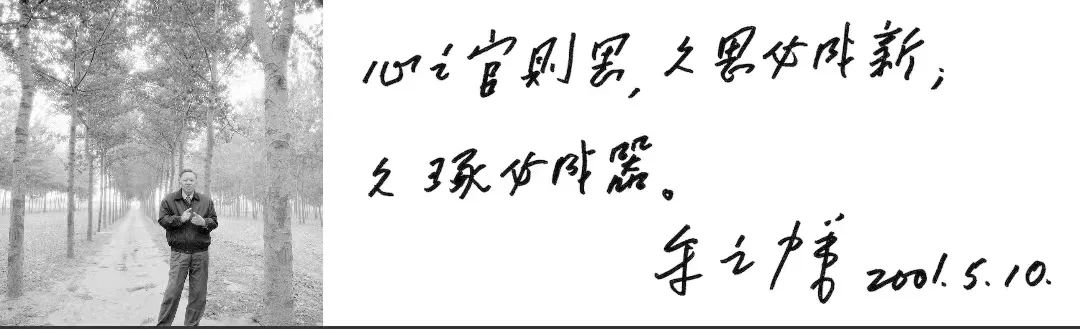 心之官则思,久思必成新;
久琢必成器。
朱之悌 2001.5.10.